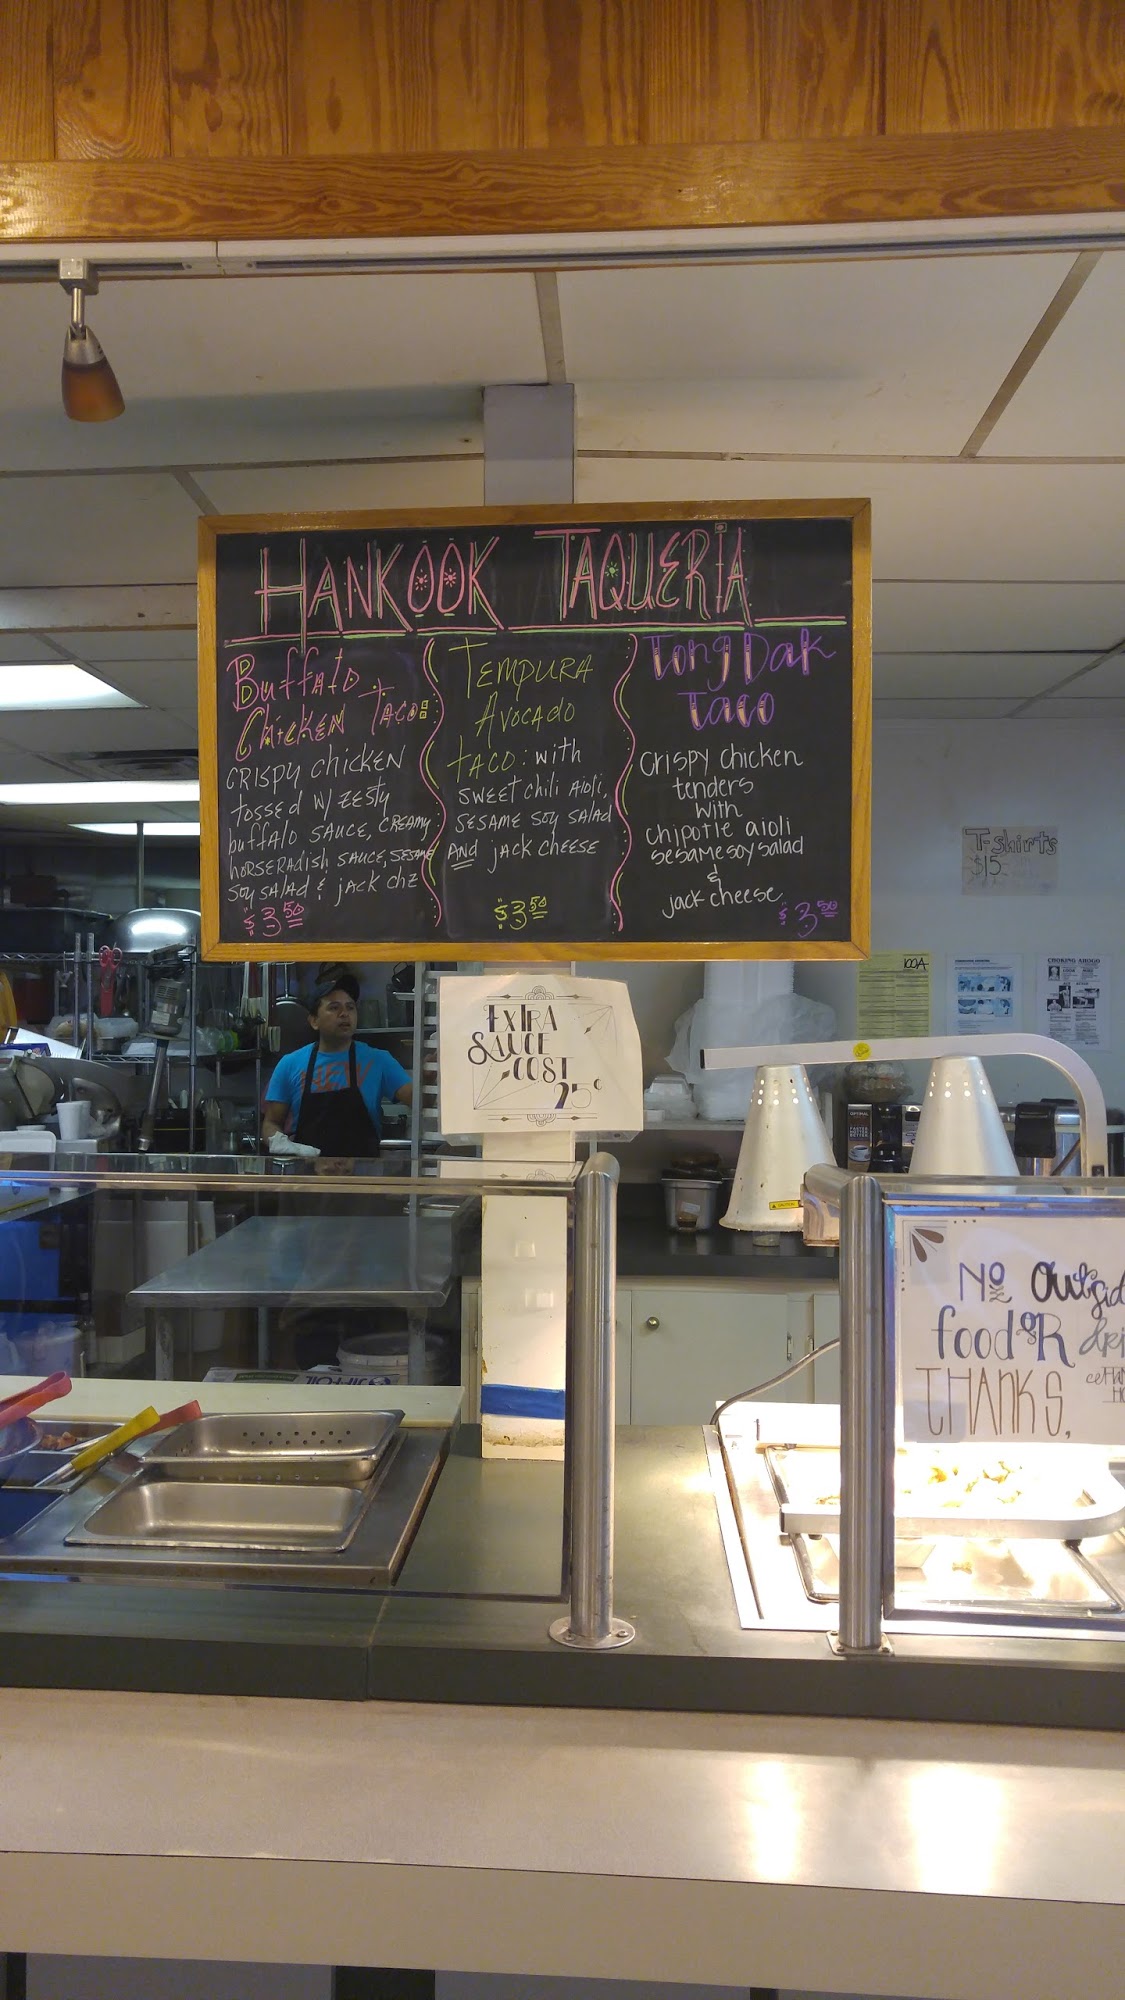 HANKOOK TAQUERIA
Buffalo
Chicken Taco:
crispy chicken
tossed w/ zesty
buffalo sauce, creamy
horseradish sauce, sesame
soy salad & jack chz
$3.50
TEMPURA
AVOCADO
TACO: with
sweet chili aioli,
sesame soy salad
AND jack cheese
$3.50
Tong Dak
Taco
Crispy chicken
tenders
with
chipotle aioli
sesame soy salad
&
jack cheese
$3.50
T-shirts
$15
100A
CHOKING AHOGO
EXTRA
SAUCE
COST
25¢
No Outsid
food oR dri
THANKS,